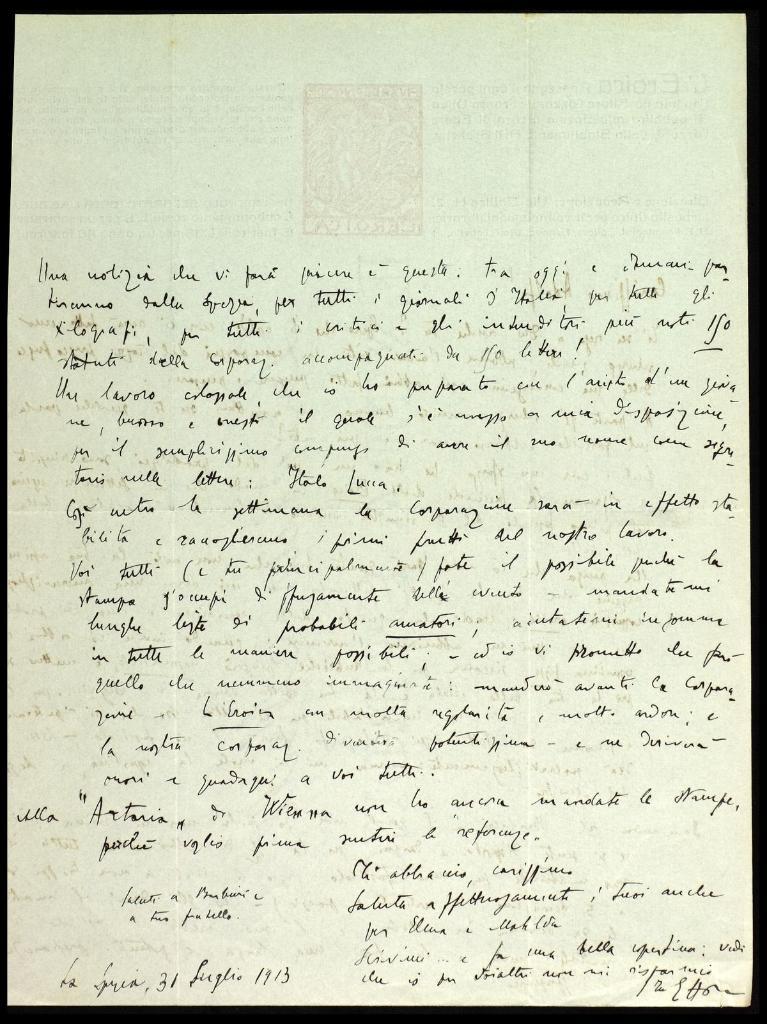 Una notizia che vi farà piacere è questa: tra oggi e domani par-
tiranno dalla Spezia, per tutti i giornali d'Italia per tutti gli
xilografi, per tutti i critici e gli intenditori più noti 150
statuti della Corporaz. accompagnati da 150 lettere!
Un lavoro colossale, che io ho preparato con l'aiuto d'un giova-
ne, buono e onesto il quale s'è messo a mia disposizione,
per il semplicissimo compenso di avere il suo nome come segre-
tario nelle lettere: Italo Lucca.
Così entro la settimana la Corporazione sarà in effetto sta-
bilita e raccoglieremo i primi frutti del nostro lavoro.
Voi tutti (e tu principalmente) fate il possibile perché la
stampa s'occupi diffusamente dell' evento - mandatemi
lunghe liste di probabili amatori, aiutatemi insomma
in tutte le maniere possibili; - ed io vi prometto che farò
quello che nemmeno immaginate: manderò avanti la Corpora-
zione e L'Eroica con molta regolarità e molto ardore; e
la nostra corporaz. diventerà potentissima - e ne deriverà
onori e guadagni a voi tutti.
Alla "Artaria" di Wienna non ho ancora mandate le stampe,
perché voglio prima sentire le referenze.
Ti abbraccio, carissimo
Saluta affettuosamente i tuoi anche
per Elena e Matilde
Scrivimi... e fa una bella copertina: vedi
che io per voialtri non mi risparmio
Tuo Ettore
Saluti a Barbieri e
a tuo fratello.
La Spezia, 31 Luglio 1913
L'Eroica